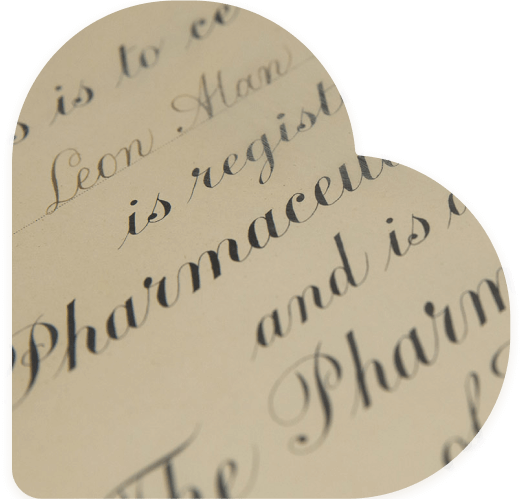 s is to ce
Leon Alan
is regist
Pharmaceu
and is
The Pharm
of